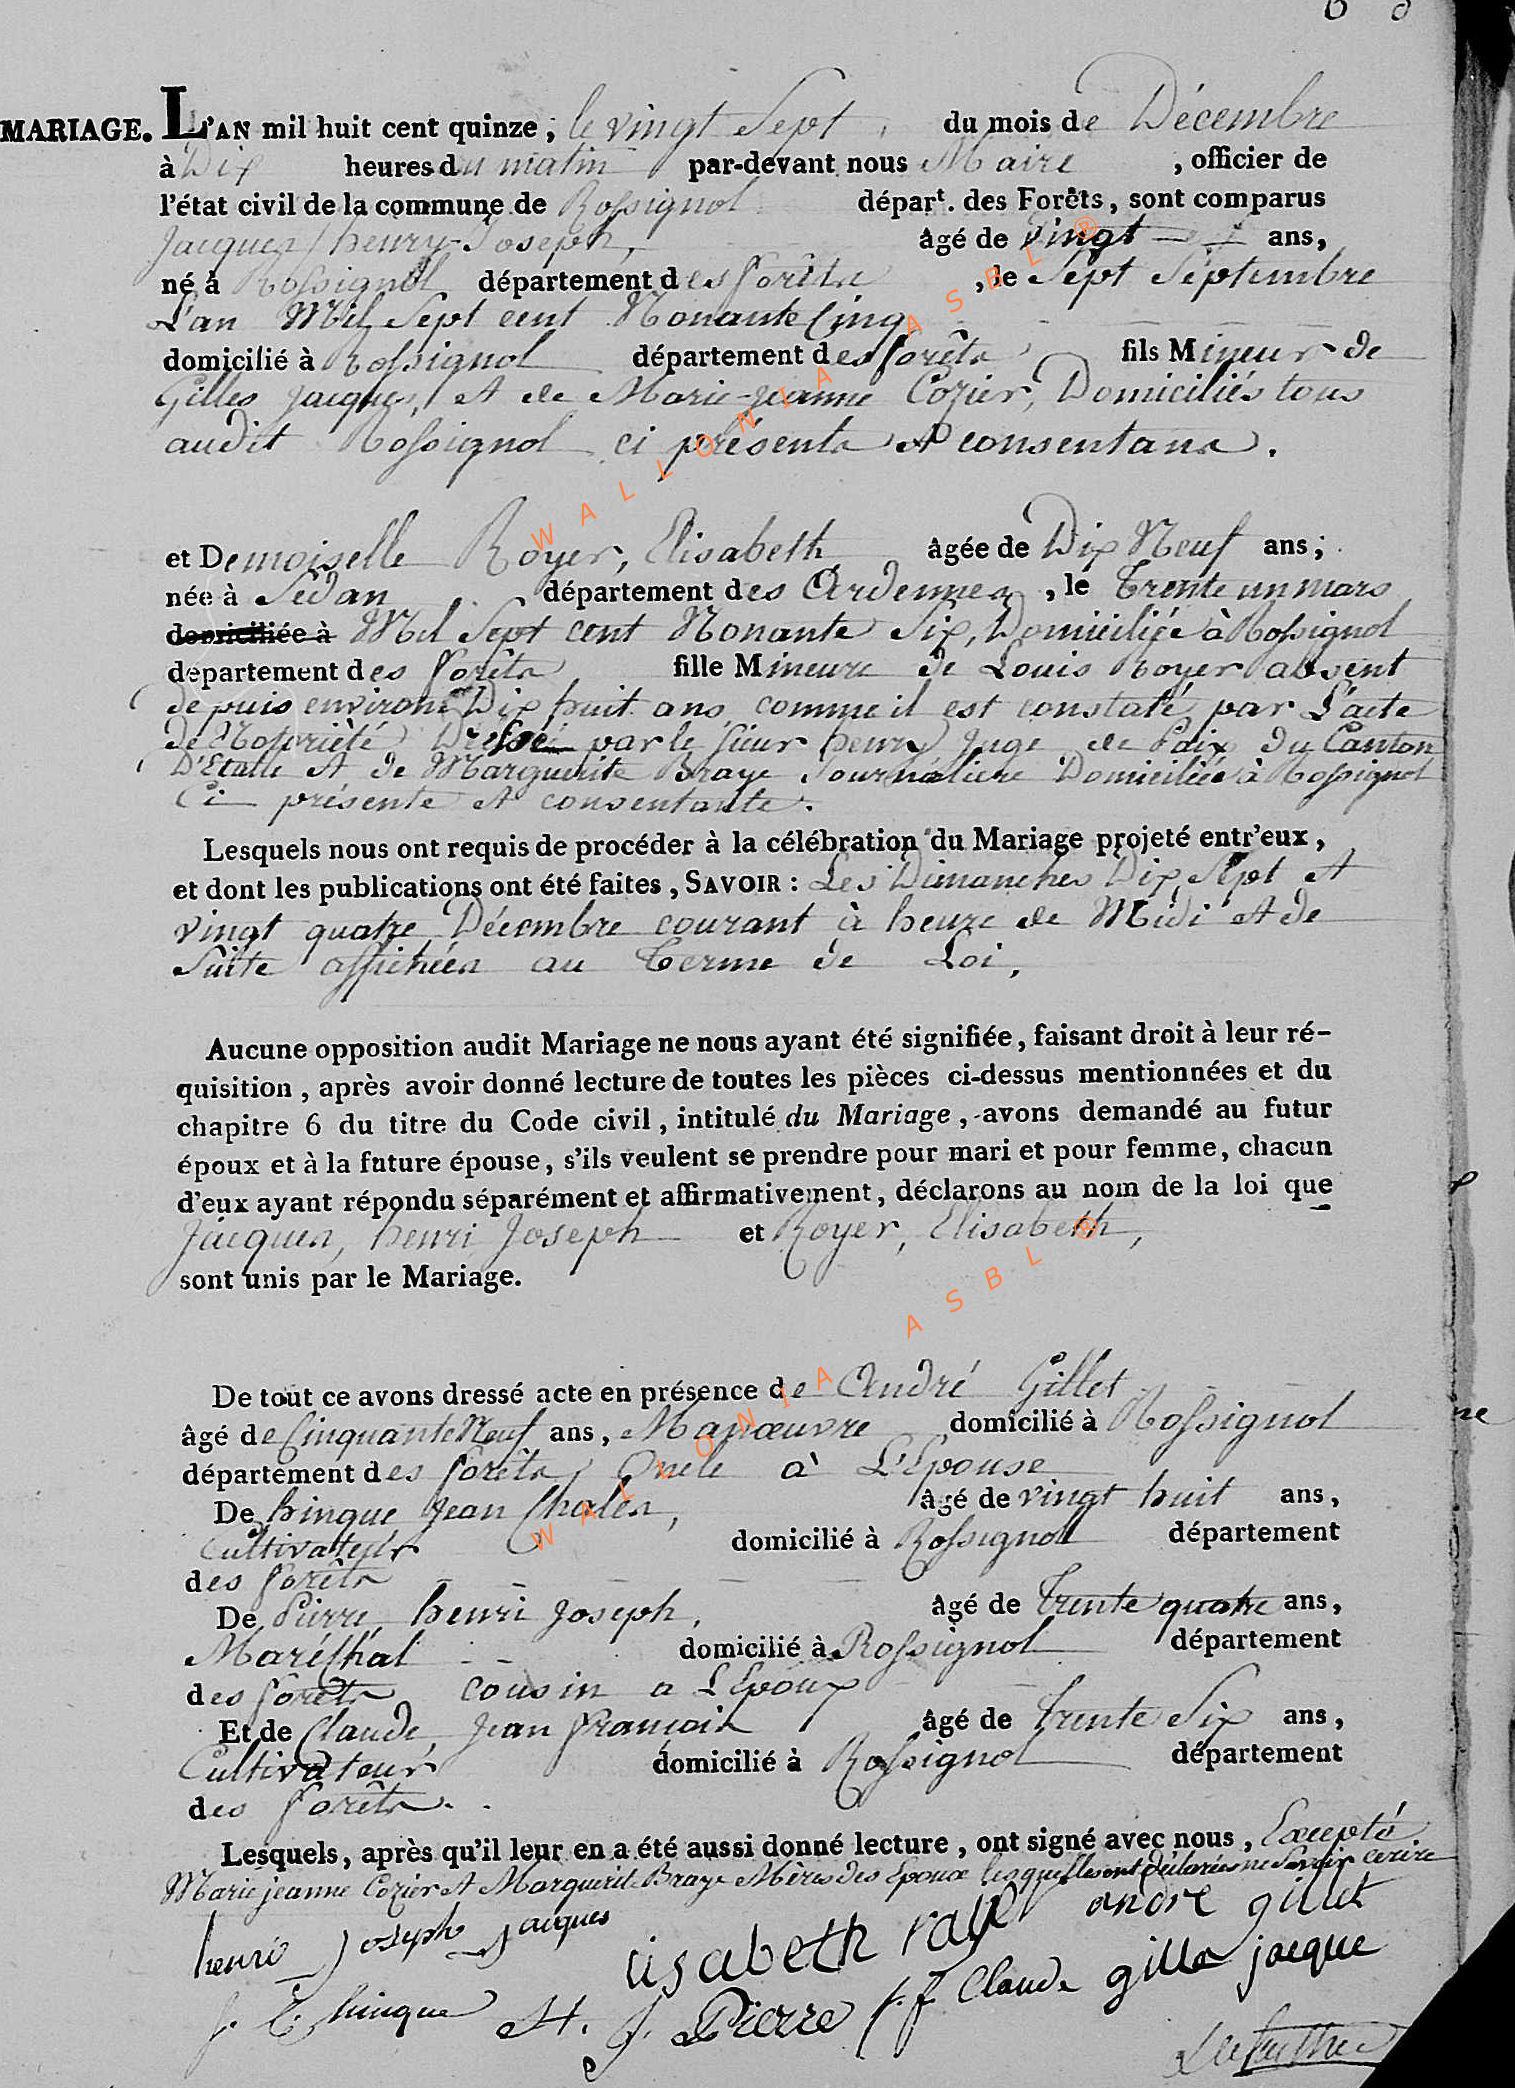 MARIAGE. L'AN mil huit cent quinze, le vingt Sept du mois de Décembre
à Dix heures du matin par-devant nous Maire, officier de
l'état civil de la commune de Rossignol départ. des Forêts, sont comparus
Jacques, henry-Joseph, âgé de Vingt ans,
né à Rossignol département des forêts, le Sept Septembre
L'an Mil Sept cent Nonante Cinq
domicilié à Rossignol département des forêts fils Mineur de
Gilles Jacques, et de Marie-Jeanne Cozier, Domiciliés tous
audit Rossignol ci présents et consentans.
et Demoiselle Royer, Elisabeth âgée de Dix Neuf ans;
née à Sedan département des Ardennes, le Trente un mars
domiciliée à Mil Sept cent Nonante Six, Domiciliée à Rossignol
département des forêts fille Mineure de Louis Royer absent
depuis environ Dix huit ans comme il est constaté par L'acte
de Notoriété Dressé par le sieur henry Juge de Paix du Canton
D'Etalle et de Marguerite Braye Journalière Domiciliée à Rossignol
Ci présente et consentante.
Lesquels nous ont requis de procéder à la célébration du Mariage projeté entr'eux,
et dont les publications ont été faites, SAVOIR : Les Dimanches Dix Sept et
vingt quatre Décembre courant à heure de Midi et de
Suite affichées au Terme de Loi,
Aucune opposition audit Mariage ne nous ayant été signifiée, faisant droit à leur ré-
quisition, après avoir donné lecture de toutes les pièces ci-dessus mentionnées et du
chapitre 6 du titre du Code civil, intitulé du Mariage, avons demandé au futur
époux et à la future épouse, s'ils veulent se prendre pour mari et pour femme, chacun
d'eux ayant répondu séparément et affirmativement, déclarons au nom de la loi que
Jacques, henri Joseph et Royer, Elisabeth,
sont unis par le Mariage.
De tout ce avons dressé acte en présence de André Gillet
âgé de Cinquante Neuf ans, Manœuvre domicilié à Rossignol
département des forêts, Oncle à L'Epouse
De hinque Jean Chales, âgé de vingt huit ans,
Cultivateur domicilié à Rossignol département
des forêts
De Pierre, henri Joseph, âgé de Trente quatre ans,
Maréchal domicilié à Rossignol département
des forêts cousin a L'Epoux
Et de Claude, Jean françois âgé de Trente Six ans,
Cultivateur domicilié à Rossignol département
des forêts.
Lesquels, après qu'il leur en a été aussi donné lecture, ont signé avec nous, Excepté
Marie jeanne Cozier et Marguerite Braye Mères des Epoux lesquelles ont déclarées ne Savoir écrire
henri Joseph Jacques
lisabeth rayer andre gillet
J. C. hinque H. J. Pierre J. f Claude gille jacque
WALLONIA ASBL ®
WALLONIA ASBL ®